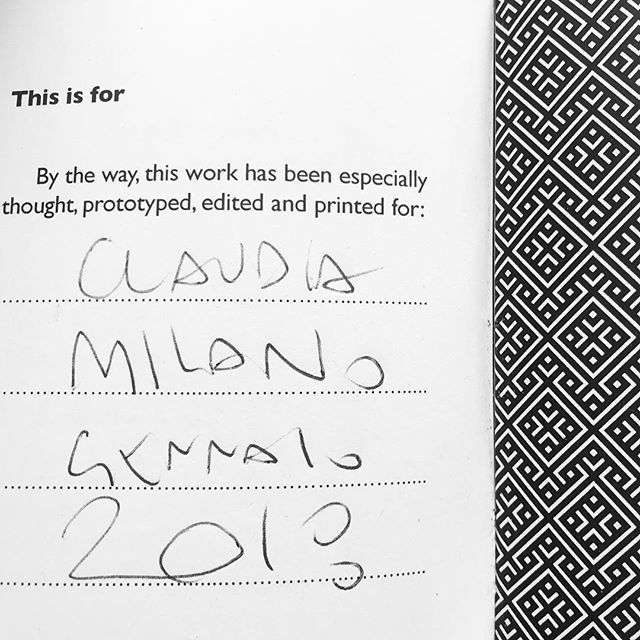 This is for
By the way, this work has been especially
thought, prototyped, edited and printed for:
CLAUDIA
MILANO
GENNAIO
2018